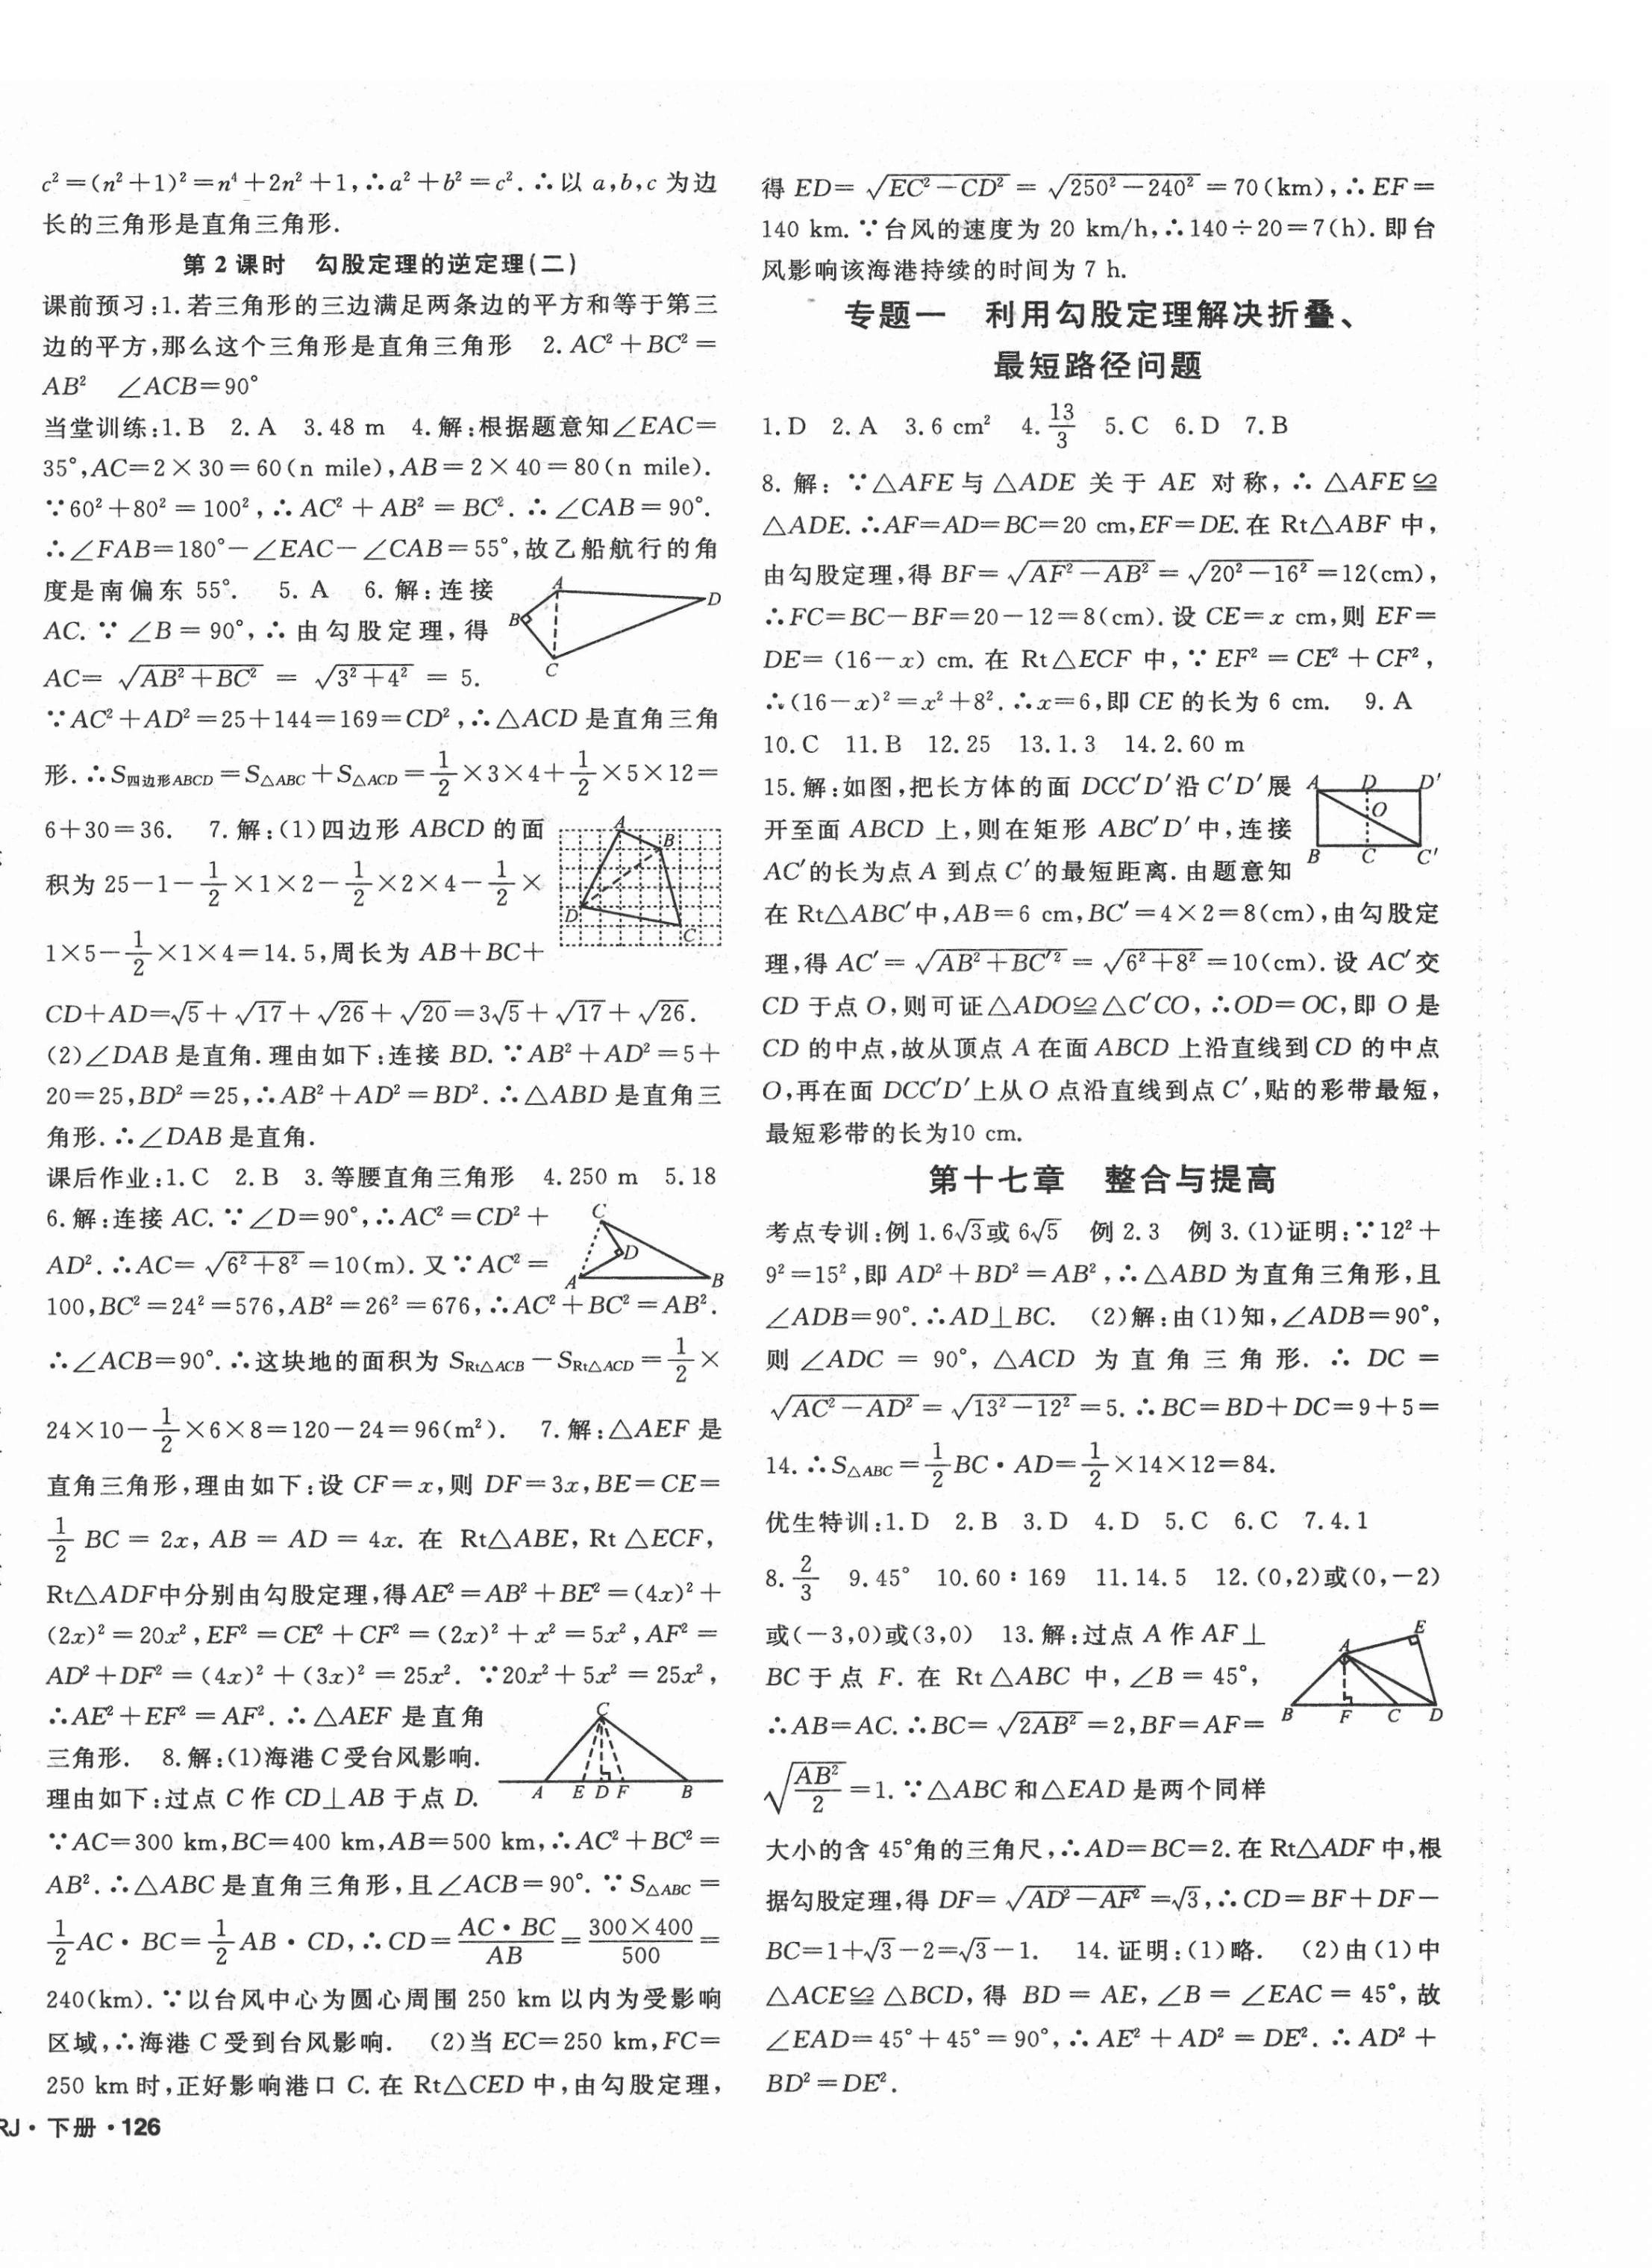 c²=(n²+1)²=n⁴+2n²+1,∴a²+b²=c².∴以 a,b,c 为边
长的三角形是直角三角形.
第 2 课时　勾股定理的逆定理(二)
课前预习:1.若三角形的三边满足两条边的平方和等于第三
边的平方,那么这个三角形是直角三角形　2.AC²+BC²=
AB²　∠ACB=90°
当堂训练:1.B　2.A　3.48 m　4.解:根据题意知∠EAC=
35°,AC=2×30=60(n mile),AB=2×40=80(n mile).
∵60²+80²=100²,∴AC²+AB²=BC².∴∠CAB=90°.
∴∠FAB=180°-∠EAC-∠CAB=55°,故乙船航行的角
度是南偏东 55°.　5.A　6.解:连接
AC.∵∠B=90°,∴由勾股定理,得
AC=√(AB²+BC²)=√(3²+4²)=5.
A
B
C
D
∵AC²+AD²=25+144=169=CD²,∴△ACD 是直角三角
形.∴S四边形ABCD=S△ABC+S△ACD=1/2×3×4+1/2×5×12=
6+30=36.　7.解:(1)四边形 ABCD 的面
积为 25-1-1/2×1×2-1/2×2×4-1/2×
1×5-1/2×1×4=14.5,周长为 AB+BC+
A
B
D
C
CD+AD=√5+√17+√26+√20=3√5+√17+√26.
(2)∠DAB 是直角.理由如下:连接 BD.∵AB²+AD²=5+
20=25,BD²=25,∴AB²+AD²=BD².∴△ABD 是直角三
角形.∴∠DAB 是直角.
课后作业:1.C　2.B　3.等腰直角三角形　4.250 m　5.18
6.解:连接 AC.∵∠D=90°,∴AC²=CD²+
AD².∴AC=√(6²+8²)=10(m).又∵AC²=
C
D
A
B
100,BC²=24²=576,AB²=26²=676,∴AC²+BC²=AB².
∴∠ACB=90°.∴这块地的面积为 SRt△ACB-SRt△ACD=1/2×
24×10-1/2×6×8=120-24=96(m²).　7.解:△AEF 是
直角三角形,理由如下:设 CF=x,则 DF=3x,BE=CE=
1/2 BC=2x,AB=AD=4x.在 Rt△ABE,Rt△ECF,
Rt△ADF中分别由勾股定理,得AE²=AB²+BE²=(4x)²+
(2x)²=20x²,EF²=CE²+CF²=(2x)²+x²=5x²,AF²=
AD²+DF²=(4x)²+(3x)²=25x².∵20x²+5x²=25x²,
∴AE²+EF²=AF².∴△AEF 是直角
三角形.　8.解:(1)海港 C 受台风影响.
理由如下:过点 C 作 CD⊥AB 于点 D.
C
A E D F B
∵AC=300 km,BC=400 km,AB=500 km,∴AC²+BC²=
AB².∴△ABC 是直角三角形,且∠ACB=90°.∵S△ABC=
1/2 AC·BC=1/2 AB·CD,∴CD=(AC·BC)/AB=(300×400)/500=
240(km).∵以台风中心为圆心周围 250 km 以内为受影响
区域,∴海港 C 受到台风影响.　(2)当 EC=250 km,FC=
250 km 时,正好影响港口 C.在 Rt△CED 中,由勾股定理,
RJ·下册·126
得 ED=√(EC²-CD²)=√(250²-240²)=70(km),∴EF=
140 km.∵台风的速度为 20 km/h,∴140÷20=7(h).即台
风影响该海港持续的时间为 7 h.
专题一　利用勾股定理解决折叠、
最短路径问题
1.D　2.A　3.6 cm²　4.13/3　5.C　6.D　7.B
8.解:∵△AFE 与△ADE 关于 AE 对称,∴△AFE≌
△ADE.∴AF=AD=BC=20 cm,EF=DE.在 Rt△ABF 中,
由勾股定理,得 BF=√(AF²-AB²)=√(20²-16²)=12(cm),
∴FC=BC-BF=20-12=8(cm).设 CE=x cm,则 EF=
DE=(16-x) cm.在 Rt△ECF 中,∵EF²=CE²+CF²,
∴(16-x)²=x²+8².∴x=6,即 CE 的长为 6 cm.　9.A
10.C　11.B　12.25　13.1.3　14.2.60 m
15.解:如图,把长方体的面 DCC′D′沿 C′D′展
开至面 ABCD 上,则在矩形 ABC′D′中,连接
AC′的长为点 A 到点 C′的最短距离.由题意知
A D D′
O
B C C′
在 Rt△ABC′中,AB=6 cm,BC′=4×2=8(cm),由勾股定
理,得 AC′=√(AB²+BC′²)=√(6²+8²)=10(cm).设 AC′交
CD 于点 O,则可证△ADO≌△C′CO,∴OD=OC,即 O 是
CD 的中点,故从顶点 A 在面 ABCD 上沿直线到 CD 的中点
O,再在面 DCC′D′上从 O 点沿直线到点 C′,贴的彩带最短,
最短彩带的长为10 cm.
第十七章　整合与提高
考点专训:例 1.6√3或 6√5　例 2.3　例 3.(1)证明:∵12²+
9²=15²,即 AD²+BD²=AB²,∴△ABD 为直角三角形,且
∠ADB=90°.∴AD⊥BC.　(2)解:由(1)知,∠ADB=90°,
则∠ADC=90°,△ACD 为直角三角形.∴DC=
√(AC²-AD²)=√(13²-12²)=5.∴BC=BD+DC=9+5=
14.∴S△ABC=1/2 BC·AD=1/2×14×12=84.
优生特训:1.D　2.B　3.D　4.D　5.C　6.C　7.4.1
8.2/3　9.45°　10.60∶169　11.14.5　12.(0,2)或(0,-2)
或(-3,0)或(3,0)　13.解:过点 A 作 AF⊥
BC 于点 F.在 Rt△ABC 中,∠B=45°,
∴AB=AC.∴BC=√(2AB²)=2,BF=AF=
E
A
B F C D
√(AB²/2)=1.∵△ABC 和△EAD 是两个同样
大小的含 45°角的三角尺,∴AD=BC=2.在 Rt△ADF 中,根
据勾股定理,得 DF=√(AD²-AF²)=√3,∴CD=BF+DF-
BC=1+√3-2=√3-1.　14.证明:(1)略.　(2)由(1)中
△ACE≌△BCD,得 BD=AE,∠B=∠EAC=45°,故
∠EAD=45°+45°=90°,∴AE²+AD²=DE².∴AD²+
BD²=DE².